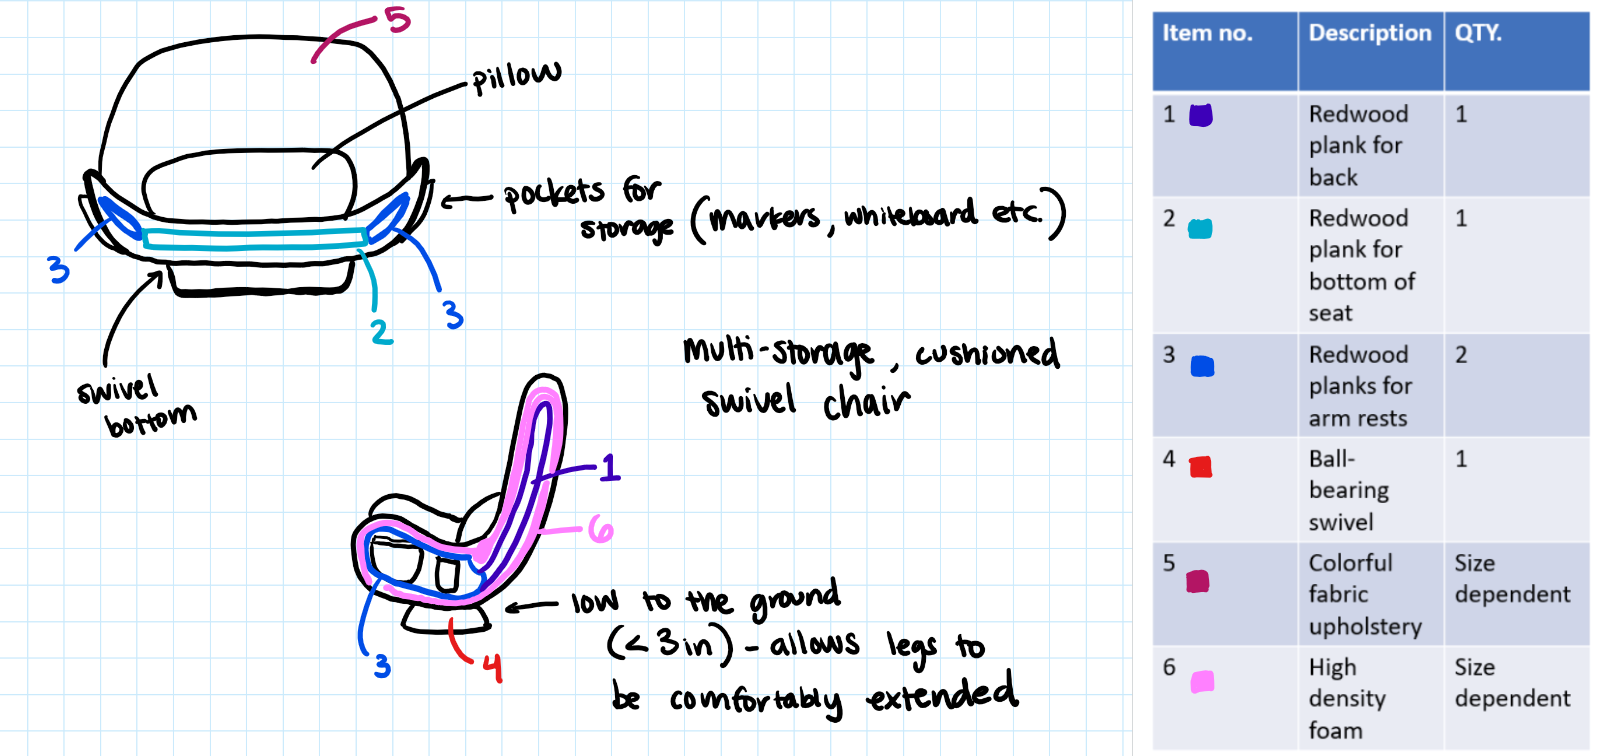 5
pillow
pockets for
storage (markers, whiteboard etc.)
3
2
3
swivel
bottom
Multi-storage, cushioned
swivel chair
1
6
low to the ground
(<3in) - allows legs to
be comfortably extended
3
4
Item no. Description QTY.
1 Redwood 1
plank for
back
2 Redwood 1
plank for
bottom of
seat
3 Redwood 2
planks for
arm rests
4 Ball- 1
bearing
swivel
5 Colorful Size
fabric dependent
upholstery
6 High Size
density dependent
foam